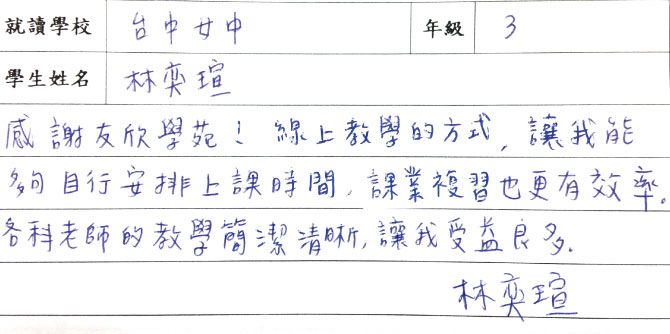 就讀學校 台中女中 年級 3
學生姓名 林奕瑄
感謝友欣學苑！線上教學的方式，讓我能
夠自行安排上課時間，課業複習也更有效率。
各科老師的教學簡潔清晰，讓我受益良多.
林奕瑄